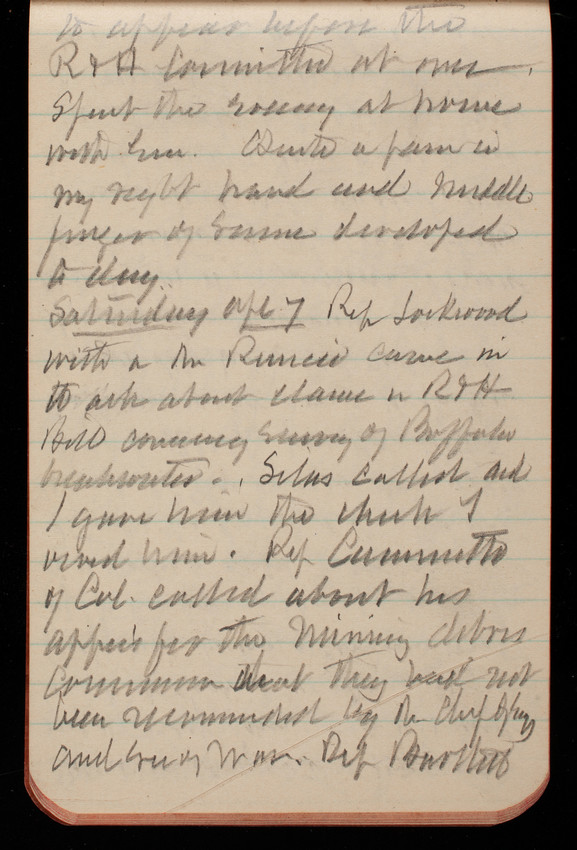 to appear before the
R & H Committee at once.
Spent the evening at home
with Quite a pain in
my right hand and middle
finger of same developed
to day.
Saturday Apl 7 Rep Lockwood
with a Mr came in
to ask about clause in R & H
Bill covering survey of Buffalo
breakwater. Silas called and
I gave him the check I
owed him. Rep Cummetti
of Cal. called about his
appr's for the Mining debris
Commission that they had not
been recommended by the Chf of Eng
and Sec of War. Rep Bartlett